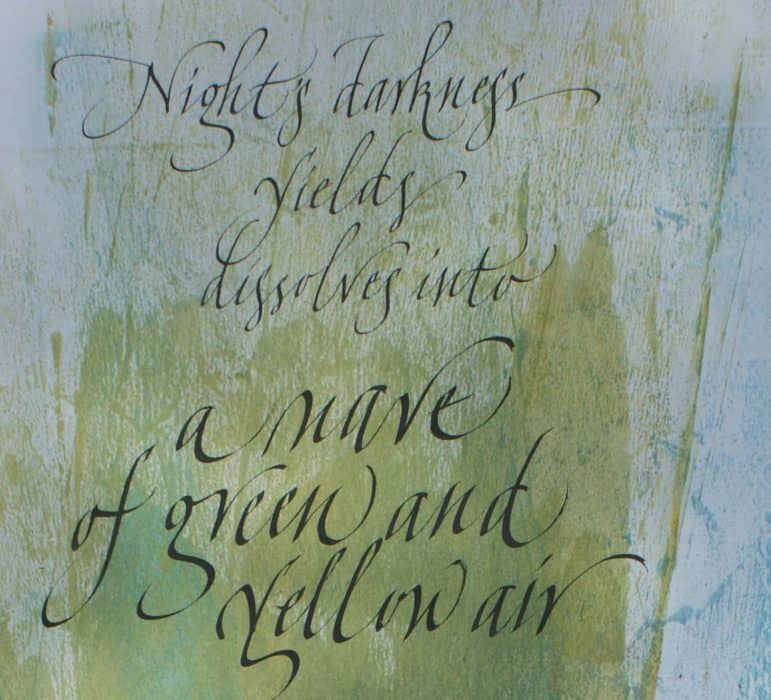 Night's darkness
yields
dissolves into
a nave
of green and
yellow air